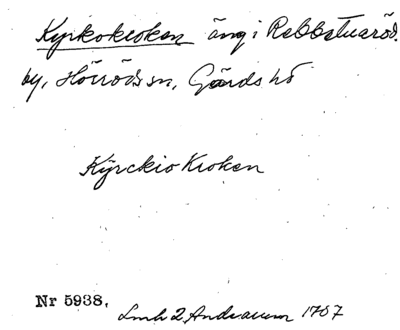 Kyrkokroken äng i Rebbetuaröd
by, Hörröds sn, Gärds hd
Kÿrckio Kroken
Nr 5938,
Lmh 2 Andrarum 1707